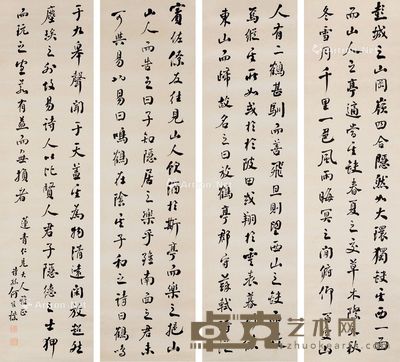 彭城之山岡嶺四合隱然如大環獨缺其西一面
而山人之亭適當其缺春夏之交草木際天秋
冬雪月千里一色風雨晦冥之間俯仰百變山
人有二鶴甚馴而善飛旦則望西山之缺而放
焉縱其所如或立於陂田或翔於雲表暮則傃
東山而歸故名之曰放鶴亭郡守蘇軾時從
賓佐僚友往見山人飲酒於斯亭而樂之挹山
人而告之曰子知隱居之樂乎雖南面之君未
可與易也易曰鳴鶴在陰其子和之詩曰鶴鳴
于九皋聲聞于天蓋其為物清遠閑放超然
塵埃之外故易詩人以比賢人君子隱德之士狎
而玩之宜若有益而無損者 蓮青仁兄大人雅正
詩孫何維樸